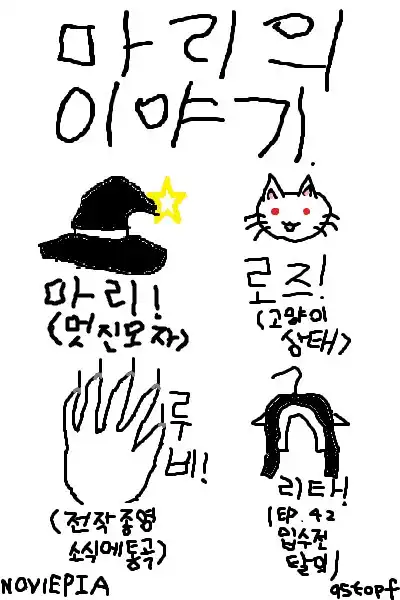 마리의
이야기.
마리!
(멋진모자)
로즈!
(고양이
상태)
루
비!
(전작종영
소식에통곡)
리타!
(EP.42
입수전
탈의)
NOVLEPIA
qstopf